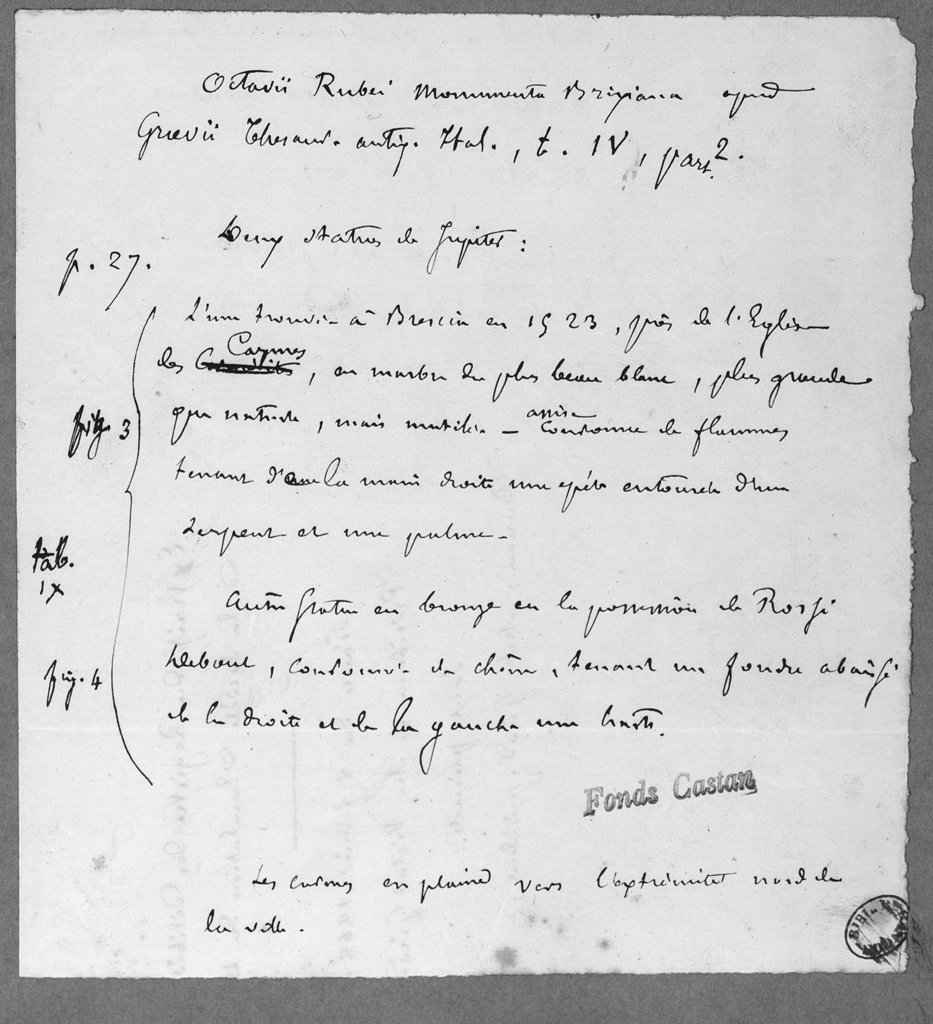 Octavii Rubei Monumenta Brixiana apud
Grævii Thesaur. antiq. Ital., t. IV, part. 2.
Deux statues de Jupiter :
p. 27.
L'une trouvée à Brescia en 1523, près de l'Eglise
des Carmes, en marbre du plus beau blanc, plus grande
que nature, mais mutilée – assise couronnée de flammes
fig. 3
tenant d la main droite une épée entourée d'un
serpent et une palme –
tab.
IX
Autre statue en bronze en la possession de Rossi
debout, couronnée de chêne, tenant un foudre abaissé
fig. 4
de la droite et de la gauche une haste.
Fonds Castan
Les carmes en plaine vers l'extrémité nord de
la ville.